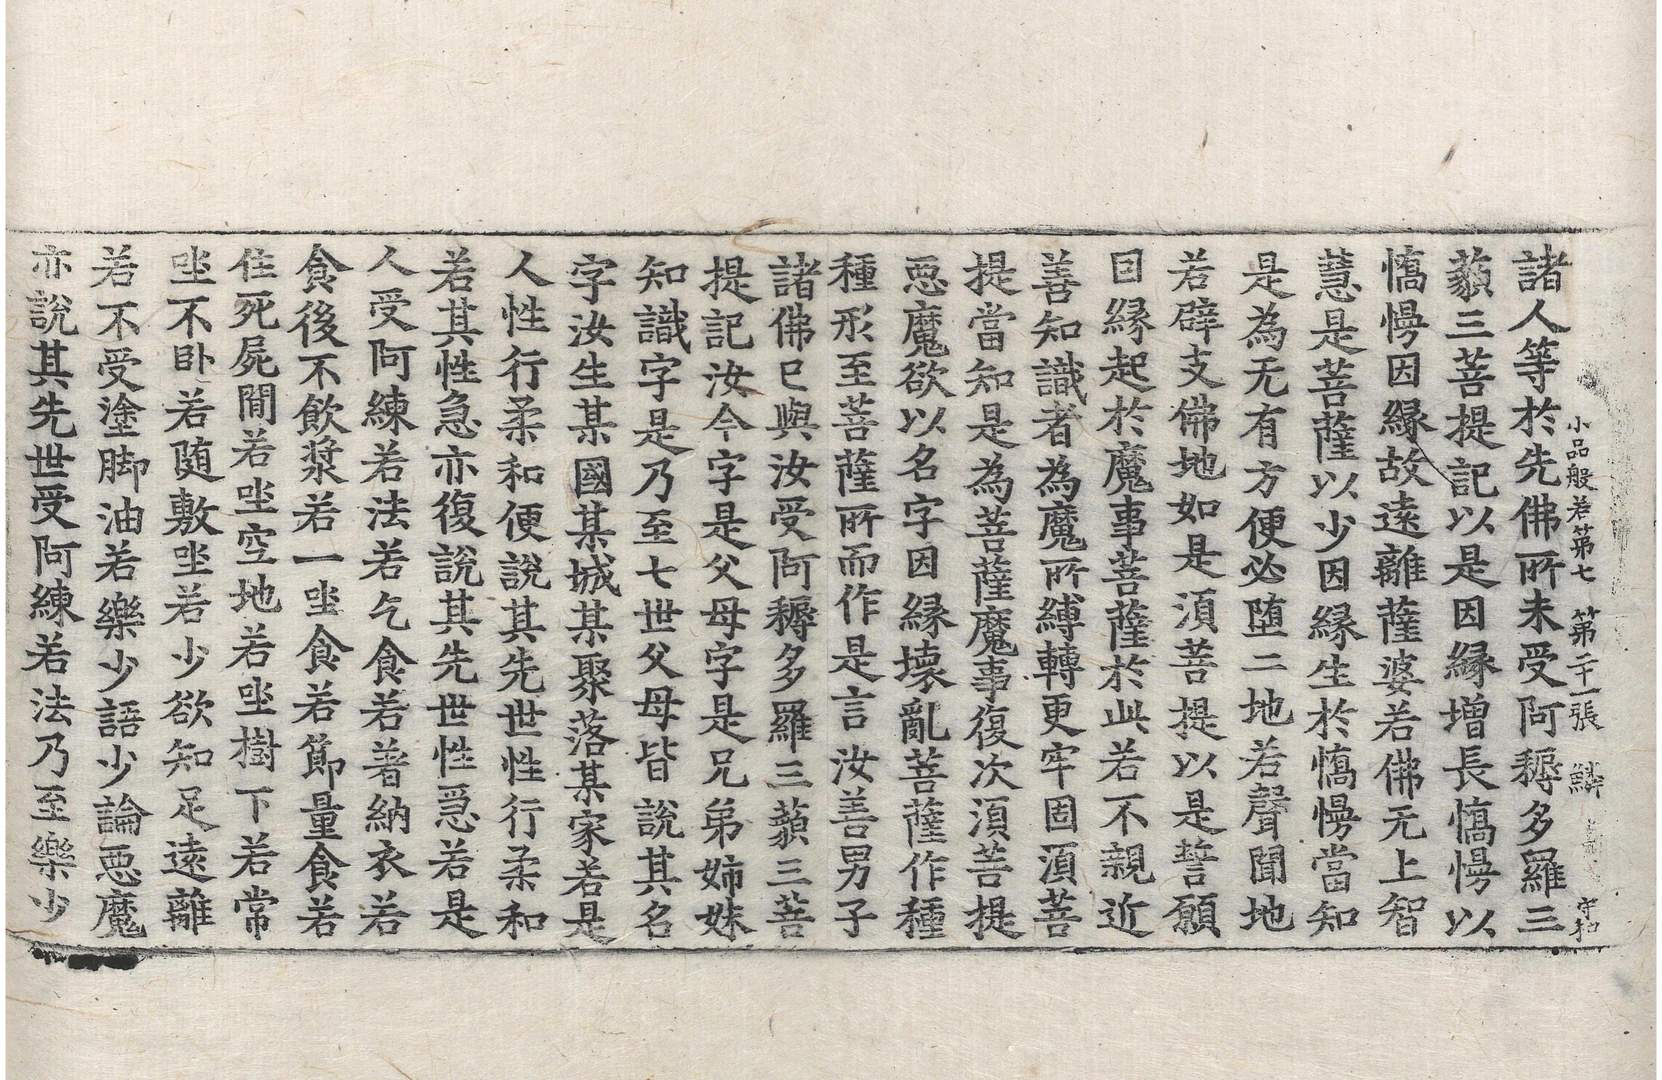 小品般若第七　第二十一張　鱗　守和
諸人等於先佛所未受阿耨多羅三
藐三菩提記以是因縁増長憍慢以
憍慢因縁故遠離薩婆若佛无上智
慧是菩薩以少因縁生於憍慢當知
是為无有方便必墮二地若聲聞地
若辟支佛地如是湏菩提以是誓願
因縁起於魔事菩薩於此若不親近
善知識者為魔所縛轉更牢固湏菩
提當知是為菩薩魔事復次湏菩提
惡魔欲以名字因縁壞亂菩薩作種
種形至菩薩所而作是言汝善男子
諸佛已與汝受阿耨多羅三藐三菩
提記汝今字是父母字是兄弟姉妹
知識字是乃至七世父母皆說其名
字汝生某國某城某聚落某家若是
人性行柔和便說其先世性行柔和
若其性急亦復說其先世性急若是
人受阿練若法若乞食若著納衣若
食後不飲漿若一坐食若節量食若
住死屍間若坐空地若坐樹下若常
坐不臥若随敷坐若少欲知足遠離
若不受塗脚油若樂少語少論惡魔
亦說其先世受阿練若法乃至樂少